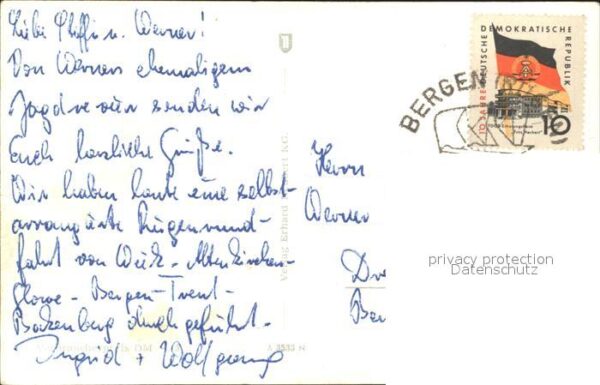 Liebe Steffi u. Werner!
Von Werners ehemaligem
Jagdrevier senden wir
Euch herzliche Grüße.
Wir haben heute eine selbst-
arrangierte Rügenrund-
fahrt von Wiek - Altenkirchen-
Glowe - Bergen - Trent -
durchgeführt.
Ingrid + Wolfgang
Verlag Erhard rt KG.
A 3533 N
Herrn
Werner
Dr
Ber
BERGEN
10 JAHRE DEUTSCHE DEMOKRATISCHE REPUBLIK
"Fritz Heckert"
10
privacy protection
Datenschutz